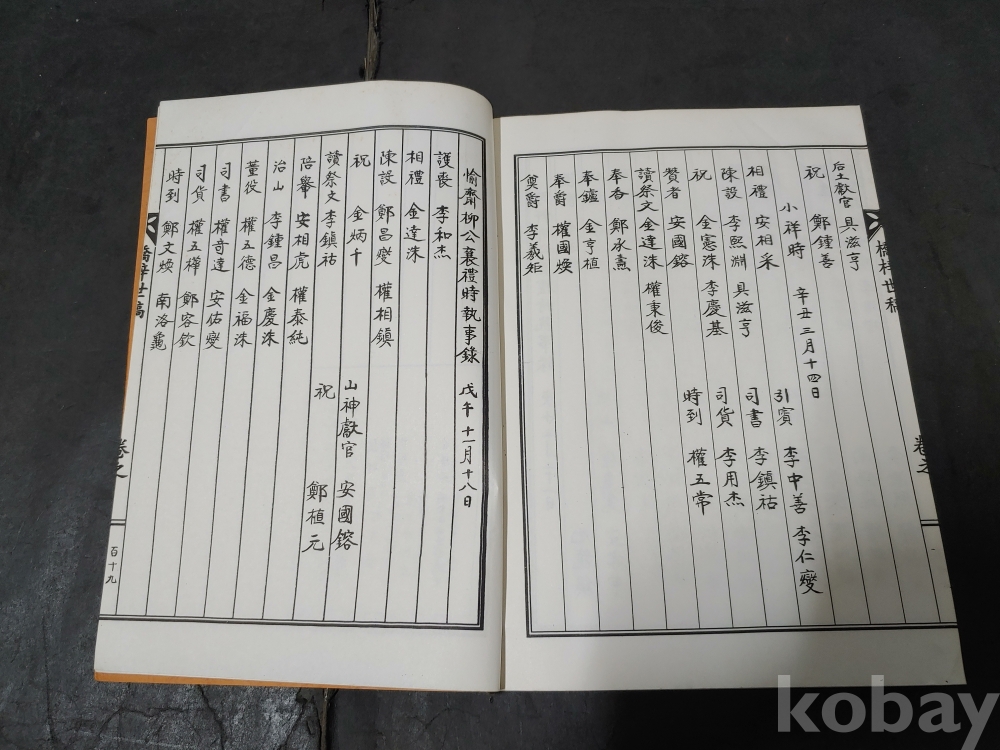 后土獻官 具滋亨
祝 鄭鍾善
小祥時 辛丑三月十四日
相禮 安相采 引賓 李中善 李仁燮
陳設 李熙淵 具滋亨 司書 李鎮祜
祝 金憲洙 李慶基 司貨 李用杰
贊者 安國鎔 時到 權五常
讀祭文 金達洙 權秉俊
奉香 鄭承熹
奉鑪 金亨植
奉爵 權國煥
奠爵 李羲矩
世稿
卷之
愉齋柳公襄禮時執事錄 戊午十一月十八日
護喪 李和杰
相禮 金達洙
陳設 鄭昌燮 權相鎮
祝 金炳千 山神獻官 安國鎔
讀祭文 李鎮祜 祝 鄭植元
陪轝 安相虎 權泰純
治山 李鍾昌 金慶洙
董役 權五德 金福洙
司書 權奇達 安佑燮
司貨 權五樺 鄭容欽
時到 鄭文煥 南洛龜
世稿
卷之
百十九
kobay